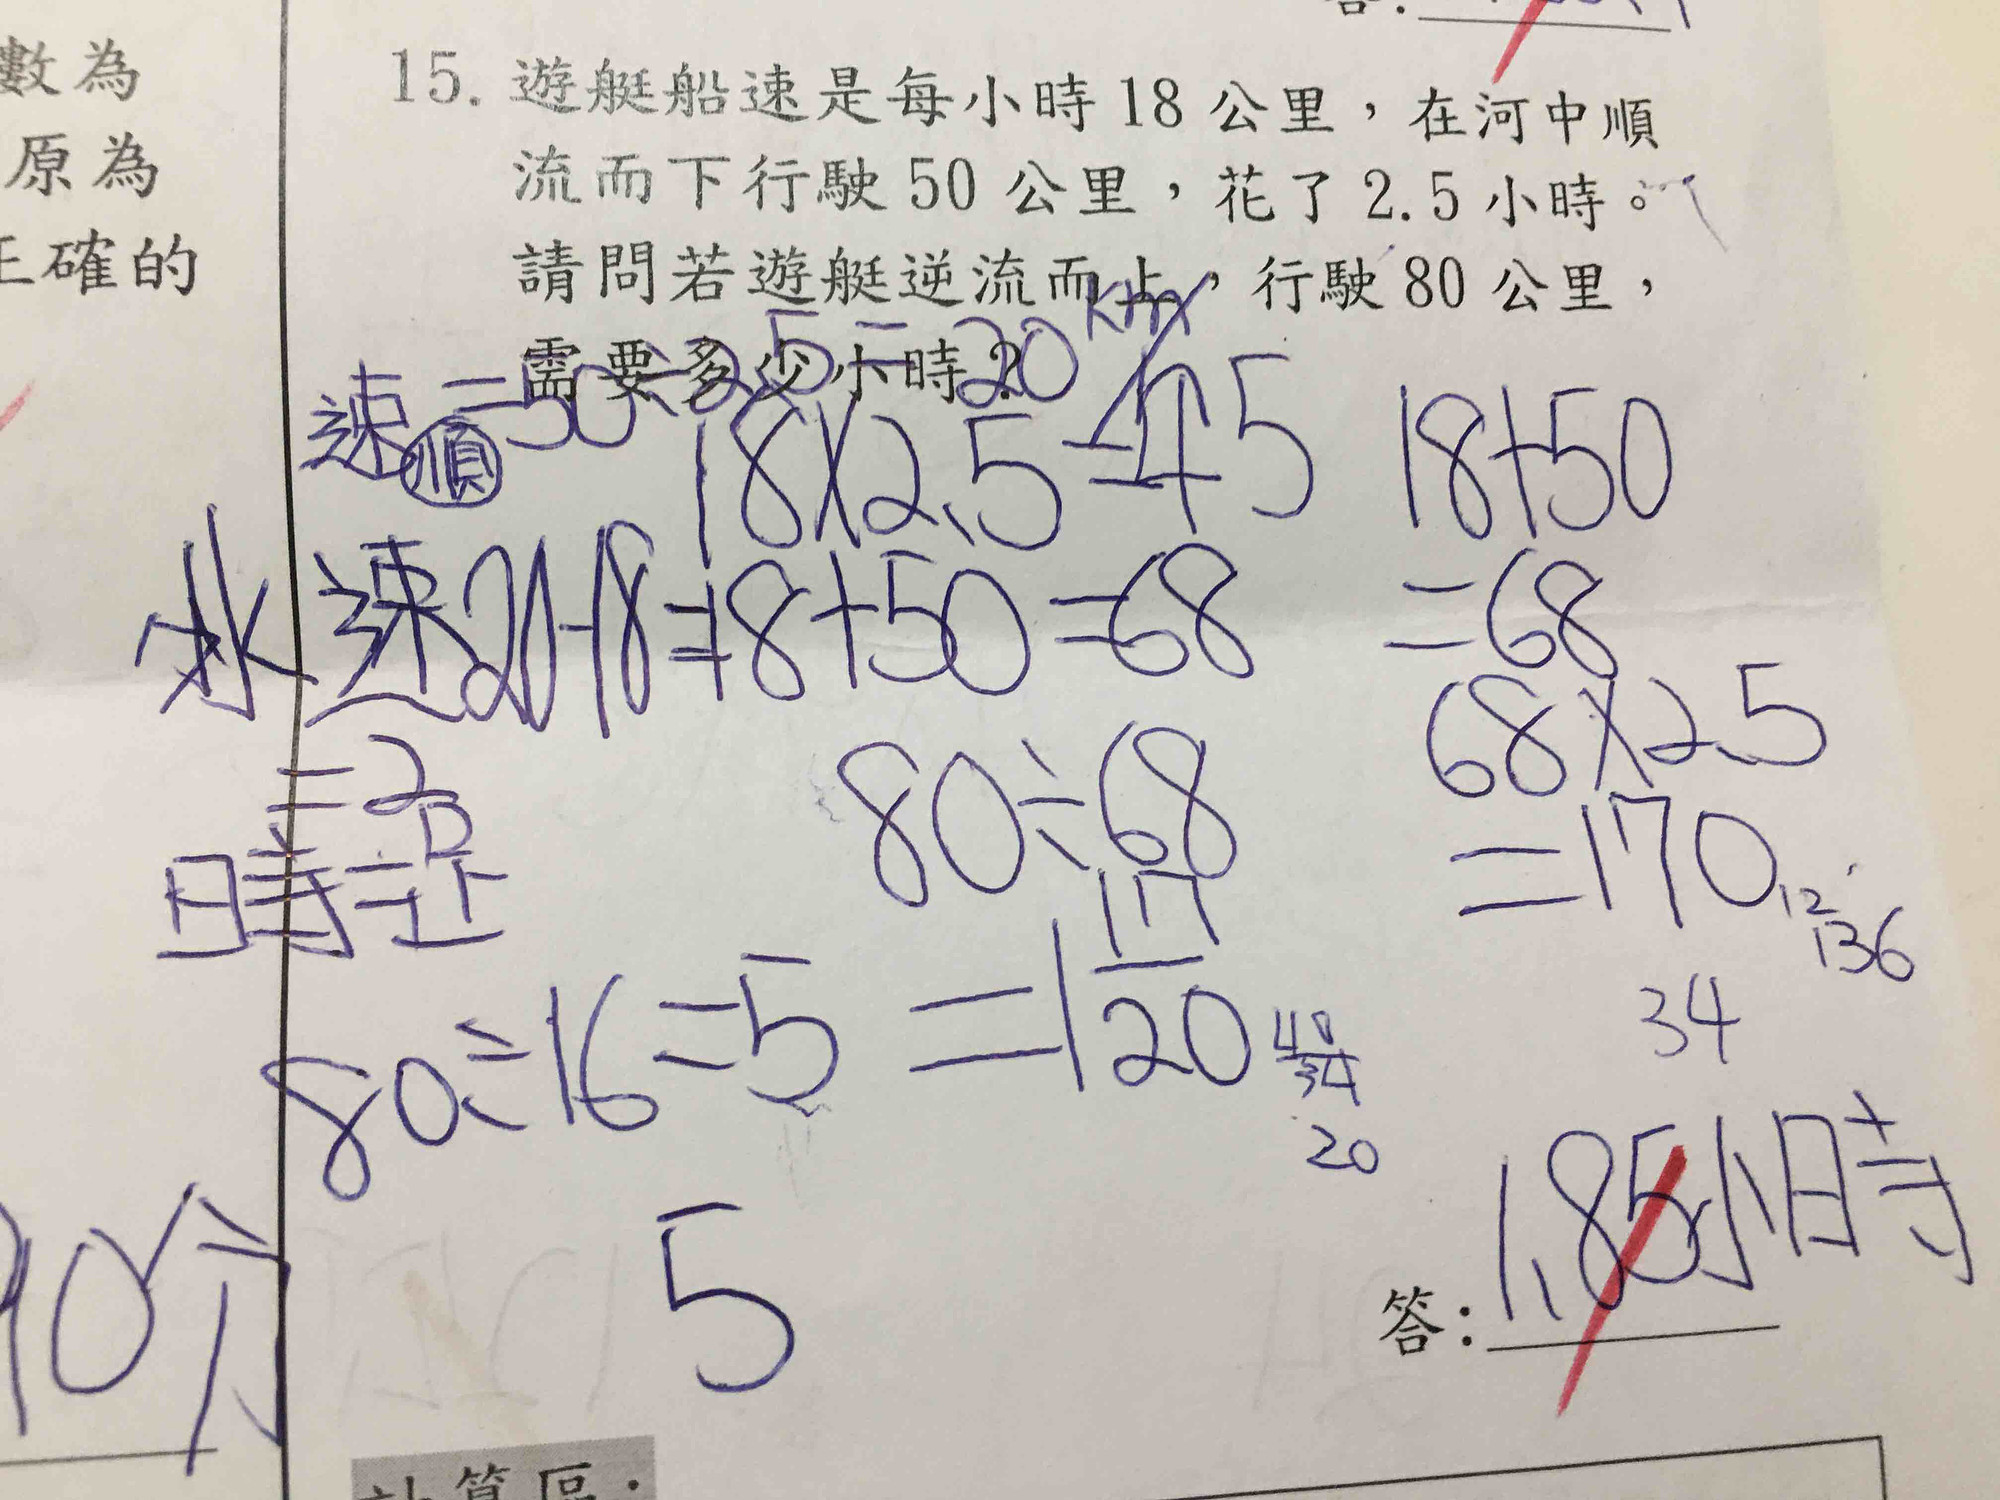 數為
原為
正確的
答:
15. 遊艇船速是每小時18公里，在河中順
流而下行駛50公里，花了2.5小時。
請問若遊艇逆流而上，行駛80公里，
需要多少小時?
速順=50÷2.5=20 km/h
18×2.5=45
18+50
水速20-18=
18+50=68
=68
=2
80÷68
68×2.5
=170
時=距
136
34
80÷16=5
=1 17/20
20
5
1.85小時
答:
90分
計算區: